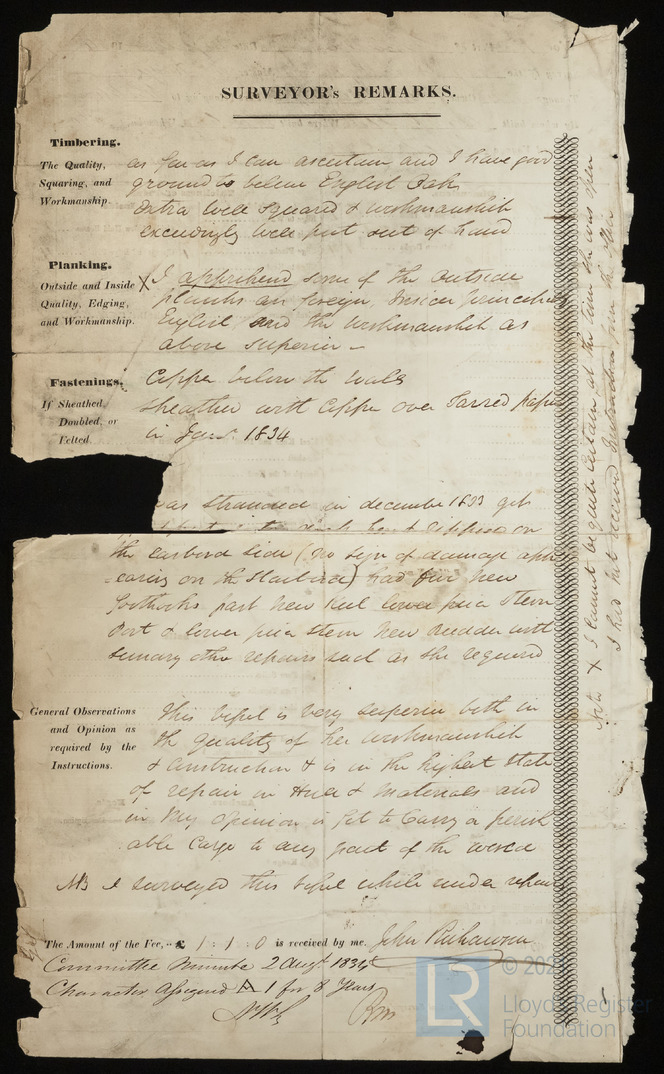 SURVEYOR's REMARKS.
Timbering.
The Quality, Squaring, and Workmanship.
as far as I can ascertain and I have good
ground to beleive English Oak
extra well squared & workmanship
exceedingly well put out of hand
Planking.
Outside and Inside Quality, Edging, and Workmanship.
X I apprehend some of the outside
planks are foreign, Inside principally
English and the workmanship as
above superior –
Fastenings.
If Sheathed, Doubled, or Felted.
Copper below the wales
sheathed with Copper over Tarred paper
in Jany. 1834
was stranded in december 1833 gets
on
the larbord side (no sign of damage appe
-earing on the Starboard) had few new
foothooks part new keel lower piece Stern
Post & lower piece stem New Rudder with
sundry other repairs such as she required
General Observations and Opinion as required by the Instructions.
This vessel is very superior both in
the quality of her workmanship
& Construction & is in the highest state
of repair in Hull & materials and
in my opinion is fit to Carry a perish
able Cargo to any part of the world
NB I surveyed this vessel while under repair
The Amount of the Fee, .. £ 1 : 1 : 0 is received by me, John Richardson
Committee Minute 2 Augt. 1834
Character Assigned A 1 for 8 Years
Note X I cannot be quite certain at the time she was open
I had not received Instructions from the
© 202
LR
Lloyd's Register
Foundation